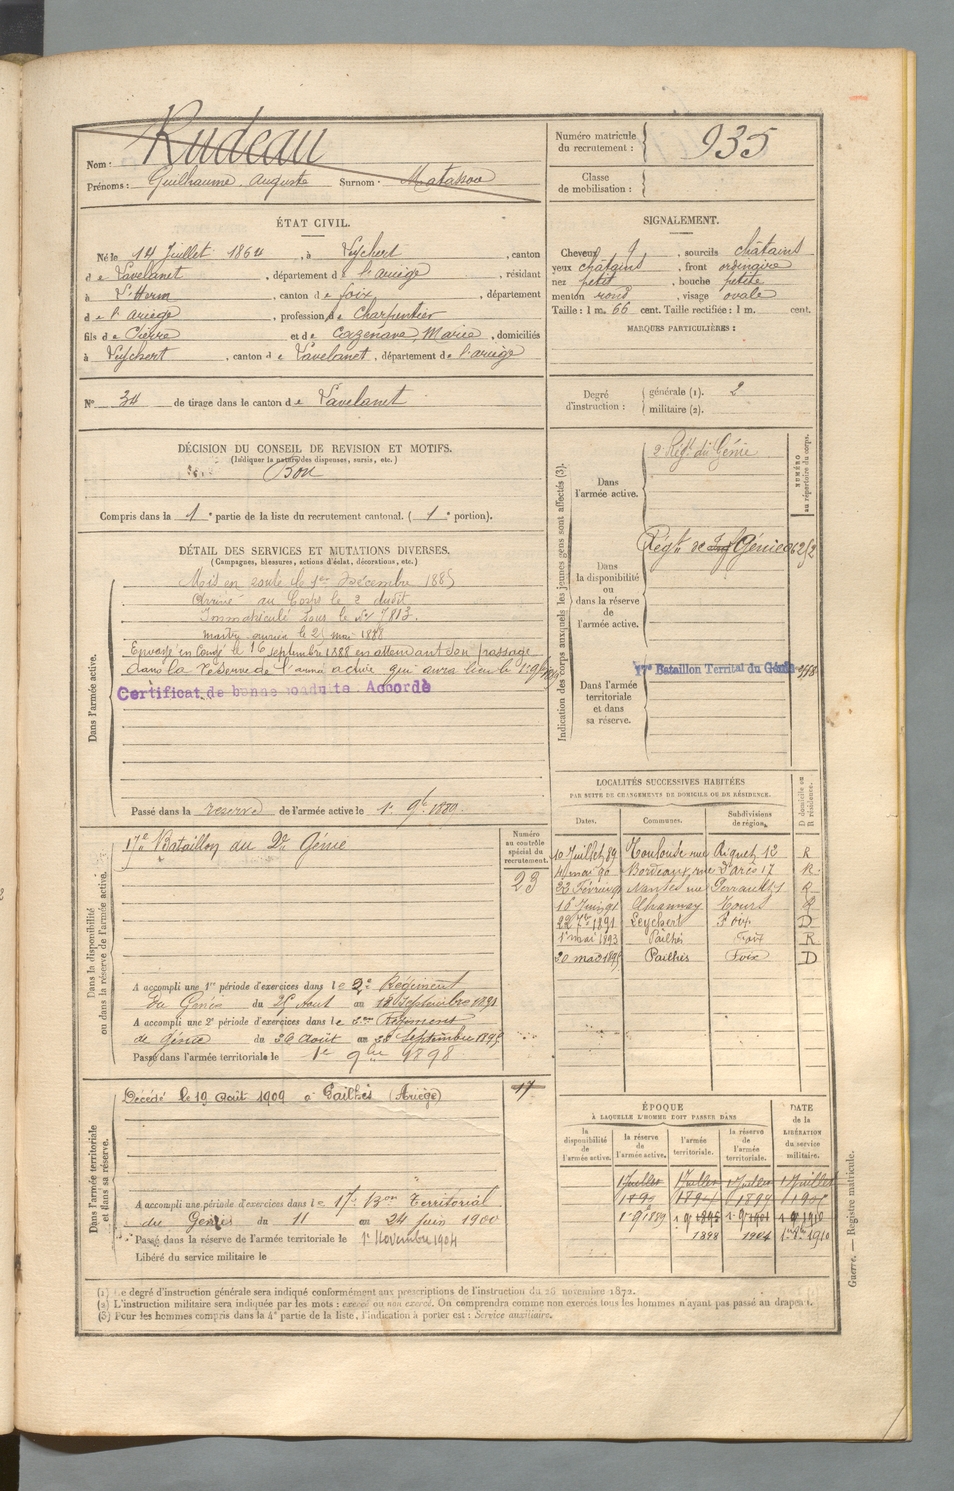 Nom : Rudeau
Prénoms : Guilhaume Auguste Surnom : Matassou
Numéro matricule du recrutement : 935
Classe de mobilisation :
ÉTAT CIVIL.
Né le 14 Juillet 1864, à Leychert, canton
de Lavelanet, département de l'ariège, résidant
à L'Herm, canton de foix, département
de l'ariège, profession de Charpentier
fils de Pierre et de Cazenave, Marie, domiciliés
à Leychert, canton de Lavelanet, département de l'ariège
SIGNALEMENT.
Cheveux, sourcils châtains
yeux châtains, front ordinaire
nez petit, bouche petite
menton rond, visage ovale
Taille : 1 m. 66 cent. Taille rectifiée : 1 m. cent.
MARQUES PARTICULIÈRES :
N° 34 de tirage dans le canton de Lavelanet
Degré d'instruction : générale (1). 2
militaire (2).
DÉCISION DU CONSEIL DE REVISION ET MOTIFS.
(Indiquer la nature des dispenses, sursis, etc.)
Bon
Compris dans la 1e partie de la liste du recrutement cantonal. (1e portion).
DÉTAIL DES SERVICES ET MUTATIONS DIVERSES.
(Campagnes, blessures, actions d'éclat, décorations, etc.)
Dans l'armée active.
Mis en route le 1er Décembre 1885
Arrivé au Corps le 2 dudit
Immatriculé sous le N° 7813.
maître ouvrier le 21 mai 1888
Envoyé en Congé le 16 septembre 1888 en attendant son passage
dans la réserve de l'armée active qui aura lieu le 1er 9bre
Certificat de bonne conduite Accordé
Passé dans la reserve de l'armée active le 1er 9bre 1889.
Indication des corps auxquels les jeunes gens sont affectés (3).
NUMÉRO au répertoire du corps.
Dans l'armée active.
2e Régt du Génie
Dans la disponibilité ou dans la réserve de l'armée active.
Régt de Génie
Dans l'armée territoriale et dans sa réserve.
17e Bataillon Territal du Génie
LOCALITÉS SUCCESSIVES HABITÉES
PAR SUITE DE CHANGEMENTS DE DOMICILE OU DE RÉSIDENCE.
Dates. Communes. Subdivisions de région. D domicile ou R résidence.
10 Juillet 89 Toulouse rue Riquet 12 R
4 mai 90 Bordeaux, rue d'arès 17 R
22 Février 91 Nantes rue R
16 Juin 91 Tours R
1891 Leychert Foix D
1er mai 1893 Pailhès Foix R
20 mai 1895 Pailhès Foix D
Dans la disponibilité ou dans la réserve de l'armée active.
17e Bataillon du 2e Génie
Numéro au contrôle spécial du recrutement.
23
A accompli une 1re période d'exercices dans le 2e Régiment
du Génie du 25 Aout au 18 Septembre 1891
A accompli une 2e période d'exercices dans le 2me Régiment
de génie du 26 Août au Septembre 1895
Passé dans l'armée territoriale le 1er 9bre 1898
Dans l'armée territoriale et dans sa réserve.
Décédé le 19 Août 1909 à Pailhès (Ariège)
17
A accompli une période d'exercices dans le 17e Bon Territorial
du Génie du 11 au 24 Juin 1900
Passé dans la réserve de l'armée territoriale le 1er Novembre 1904
Libéré du service militaire le
ÉPOQUE
À LAQUELLE L'HOMME DOIT PASSER DANS
la disponibilité de l'armée active. la réserve de l'armée active. l'armée territoriale. la réserve de l'armée territoriale.
DATE de la LIBÉRATION du service militaire.
1 Juillet 1 Juillet 1 Juillet 1 Juillet
1er 9bre 1889 1er 9 1895 1er 9 1901 1er 9 1910
1898 1904 1er 9bre 1910
Guerre. — Registre matricule.
(1) Le degré d'instruction générale sera indiqué conformément aux prescriptions de l'instruction du 26 novembre 1872.
(2) L'instruction militaire sera indiquée par les mots : exercé ou non exercé. On comprendra comme non exercés tous les hommes n'ayant pas passé au drapeau.
(3) Pour les hommes compris dans la 4e partie de la liste, l'indication à porter est : Service auxiliaire.